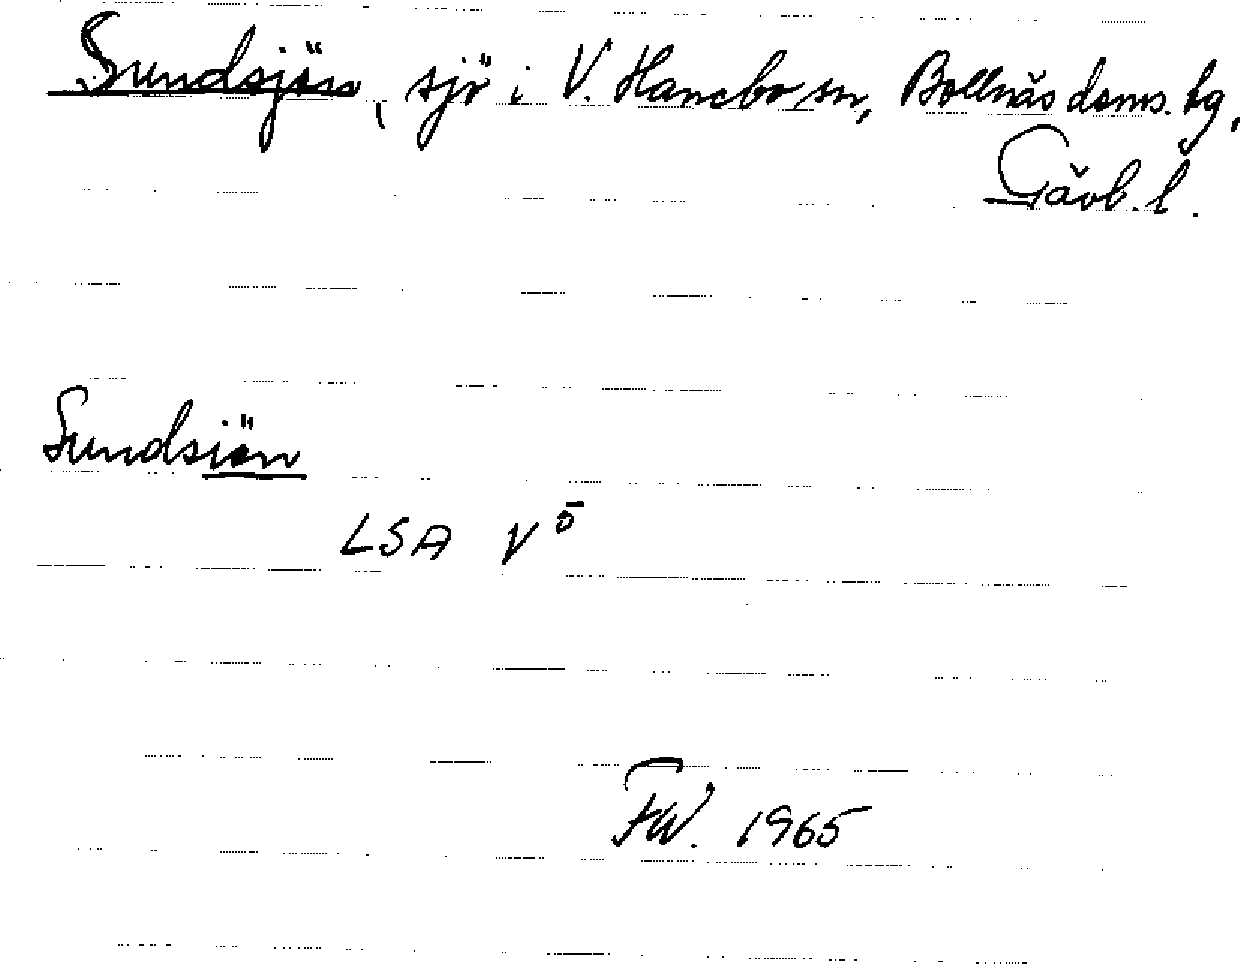 Sundsjön, sjö i V. Hanebo sn, Bollnäs doms. tg,
Gävl. l.
Sundsiön
LSA V⁵
FW. 1965